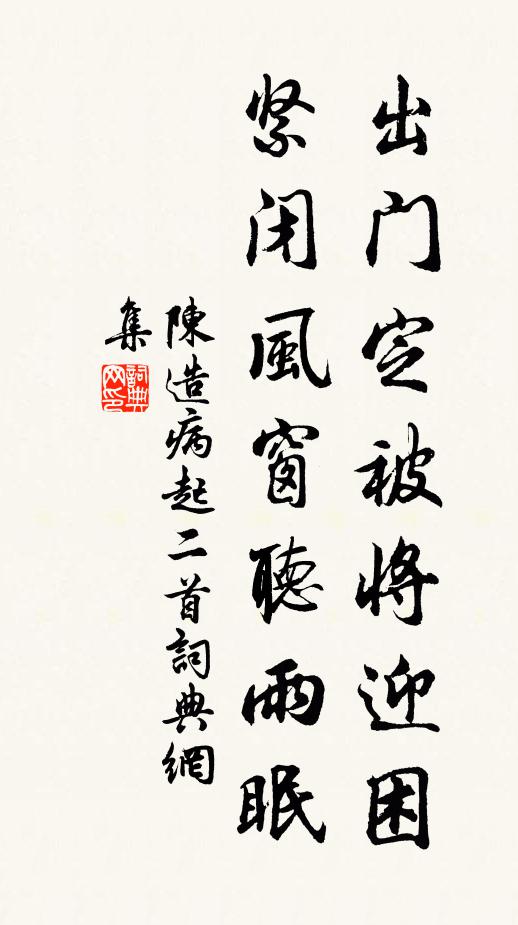 出門定被將迎困
紧闭風窗聽雨眠
陳造病起二首詞典網
集
詞典
网印